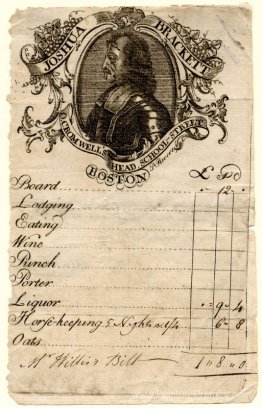 JOSHUA BRACKETT
O. CROMWELLS HEAD SCHOOL STREET
BOSTON
£ S d
Board 12
Lodging
Eating
Wine
Punch
Porter
Liquor 9 4
Horse-keeping 5 Nights 6 8
Oats
Mr Bill 1 8 0